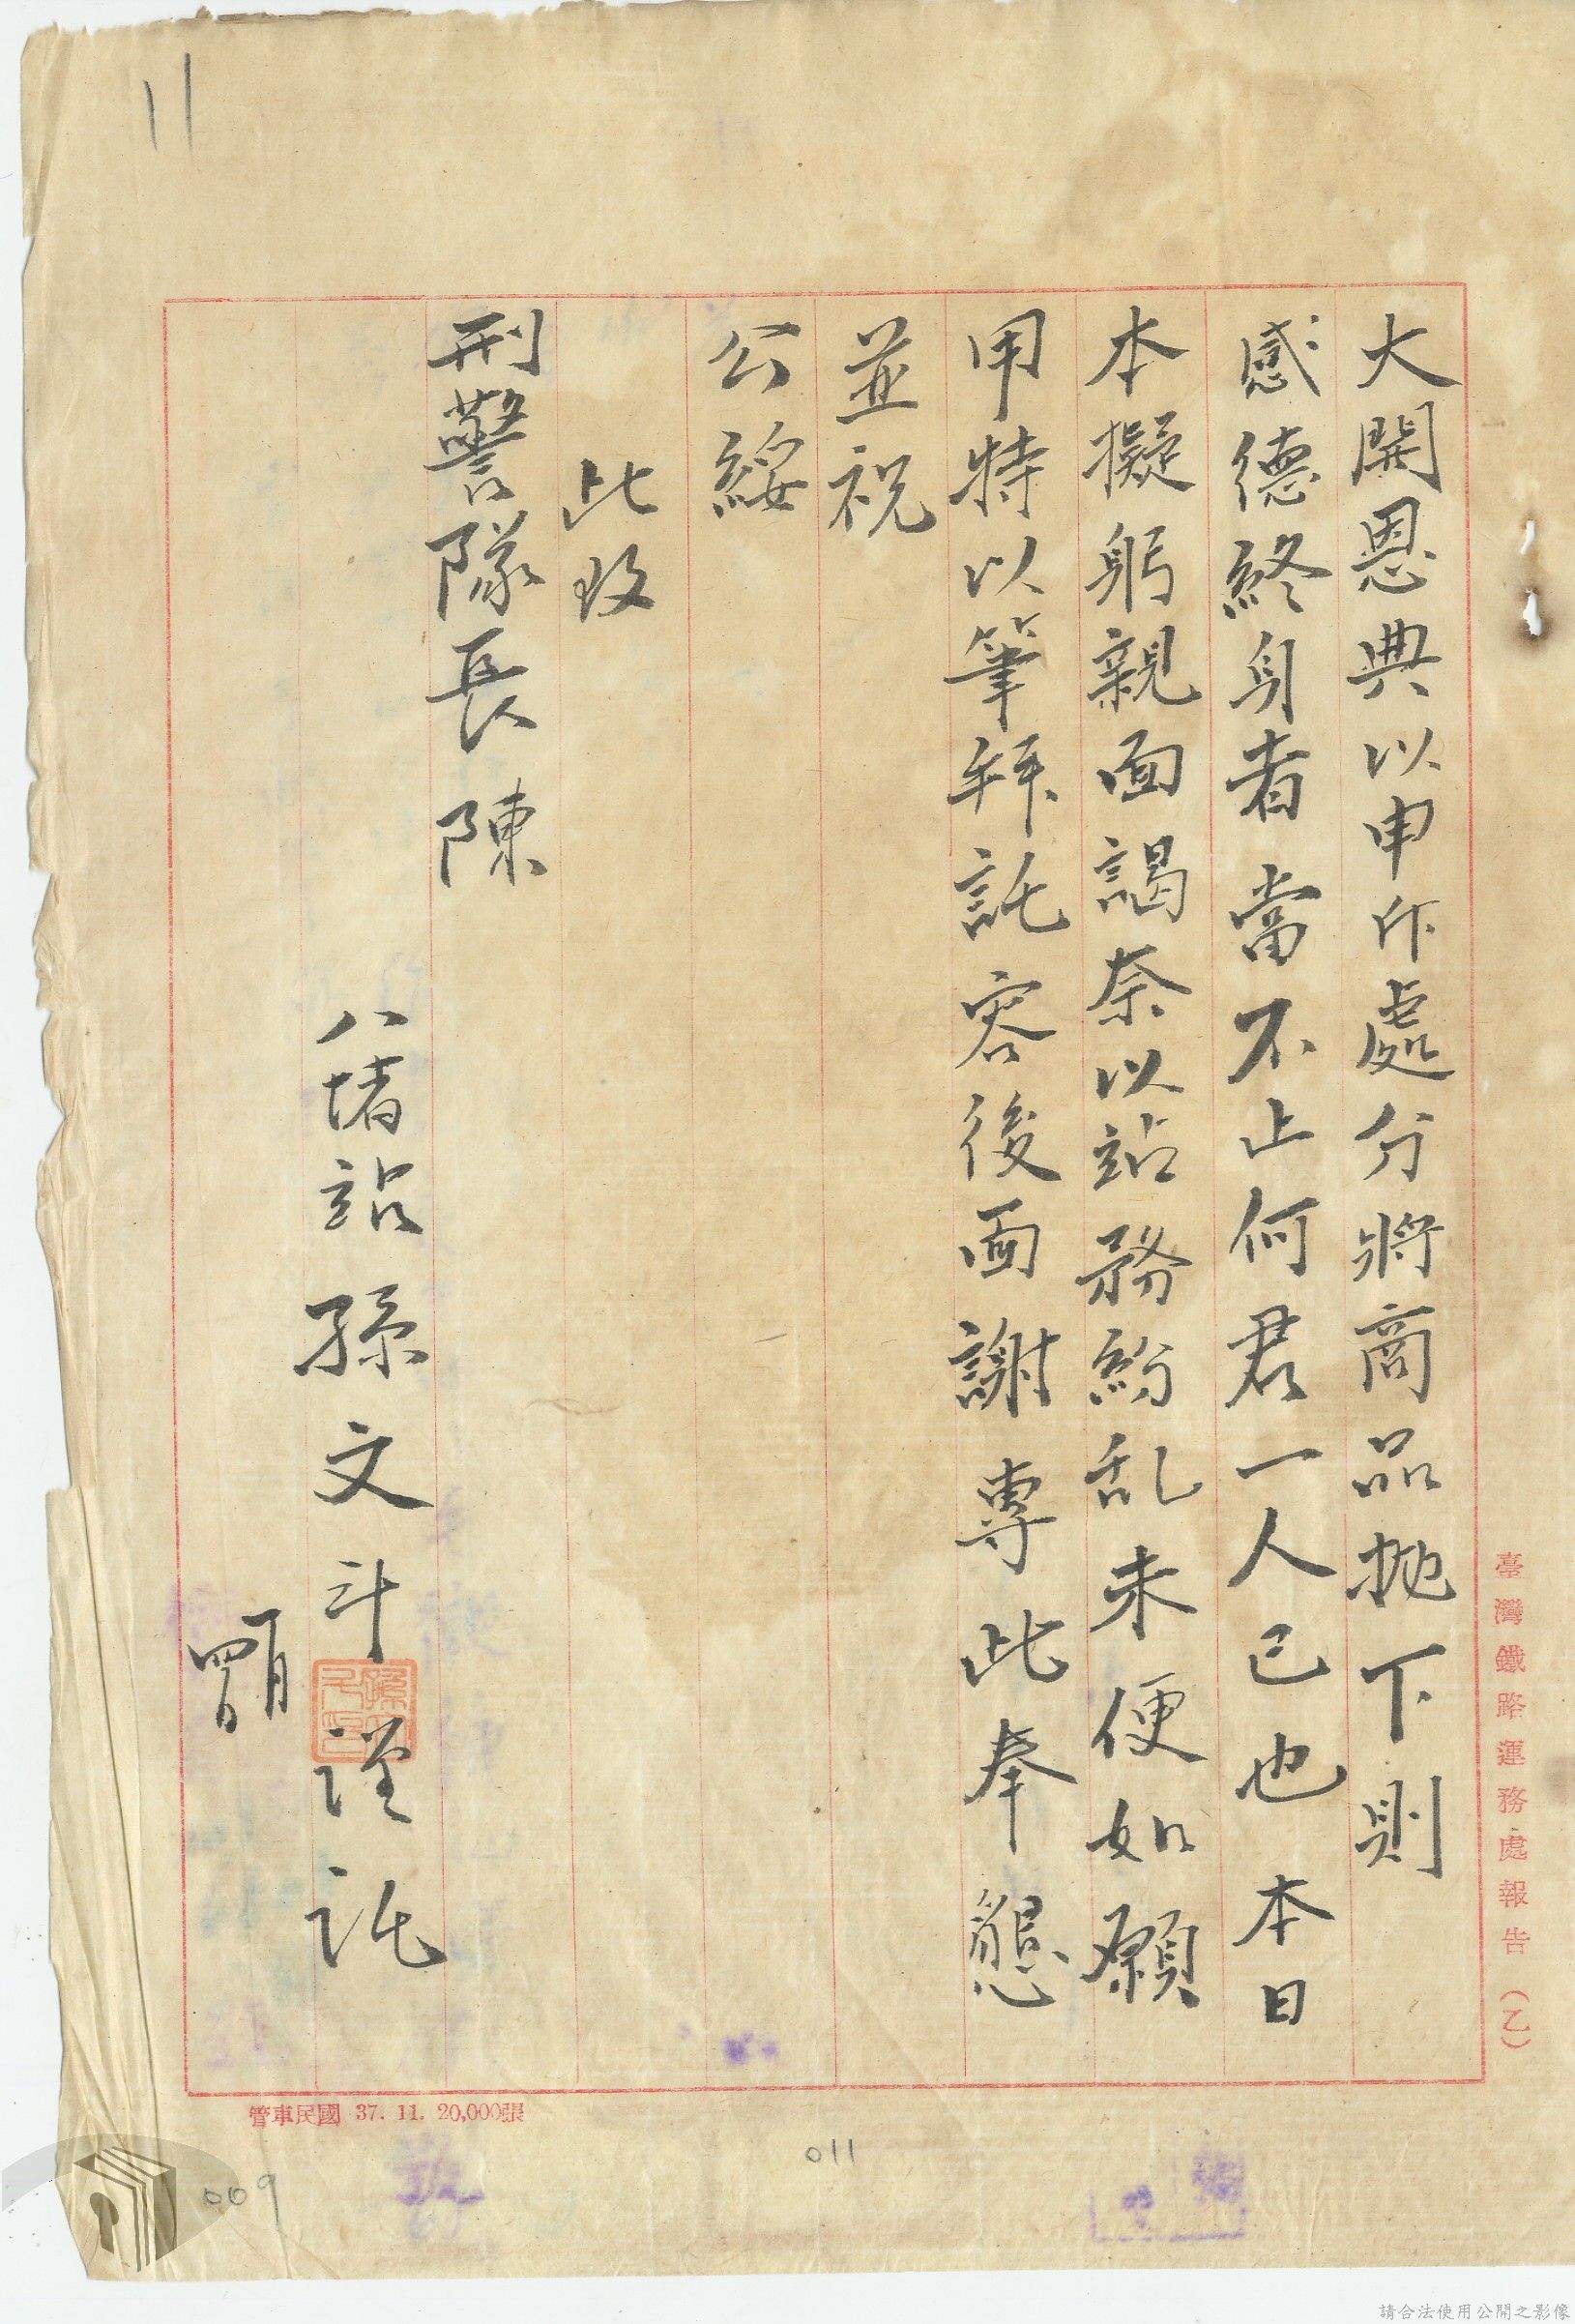 臺灣鐵路運務處報告（乙）
大開恩典以申斥處分將商品拋下則
感德終身者當不止何君一人已也本日
本擬躬親面謁奈以站務紛乱未便如願
用特以筆拜託容後面謝專此奉懇
並祝
公綏
此致
刑警隊長陳
八堵站孫文斗謹託
管車民國 37. 11. 20,000張
11
011
009
請合法使用公開之影像